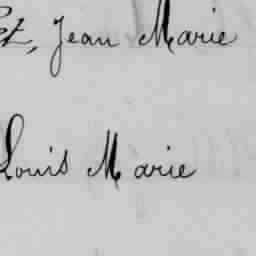 et, Jean Marie
Louis Marie